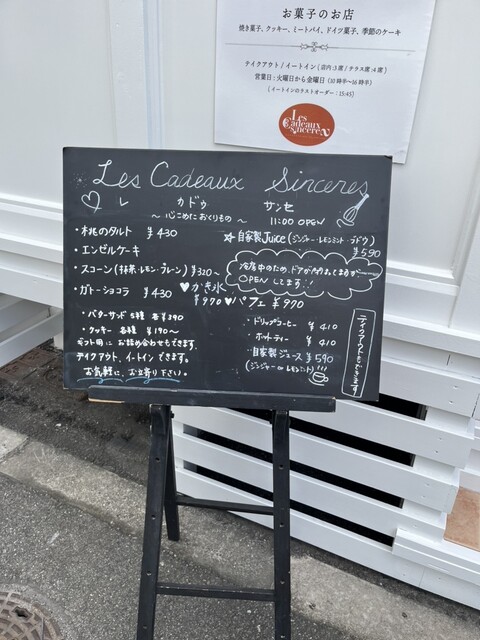 お菓子のお店
焼き菓子、クッキー、ミートパイ、ドイツ菓子、季節のケーキ
テイクアウト / イートイン (店内:3席 / テラス席:4席)
営業日:火曜日から金曜日 (10時半〜16時半)
(イートインのラストオーダー:15:45)
Les Cadeaux Sinceres
Les Cadeaux Sinceres
レ カドゥ サンセ
〜心こめたおくりもの〜 11:00 OPEN
・桃のタルト ¥430
☆自家製Juice(ジンジャー・レモンミント・ブドウ)
¥590
・エンゼルケーキ
・スコーン(抹茶・レモン・プレーン) ¥320〜
冷房中のため、ドアが閉めてますが
OPENしてます!!
・ガトーショコラ ¥430
♥かき氷
¥970 ♥パフェ ¥970
・バターサンド 5種 各¥390
・クッキー 各種 ¥190〜
ギフト用に お詰め合わせもできます。
テイクアウト、イートインできます。
お気軽に、お立寄り下さい。
・ドリップコーヒー ¥410
・ホットティー ¥410
・自家製ジュース ¥590
(ジンジャー or レモンミント)
テイクアウトもできます